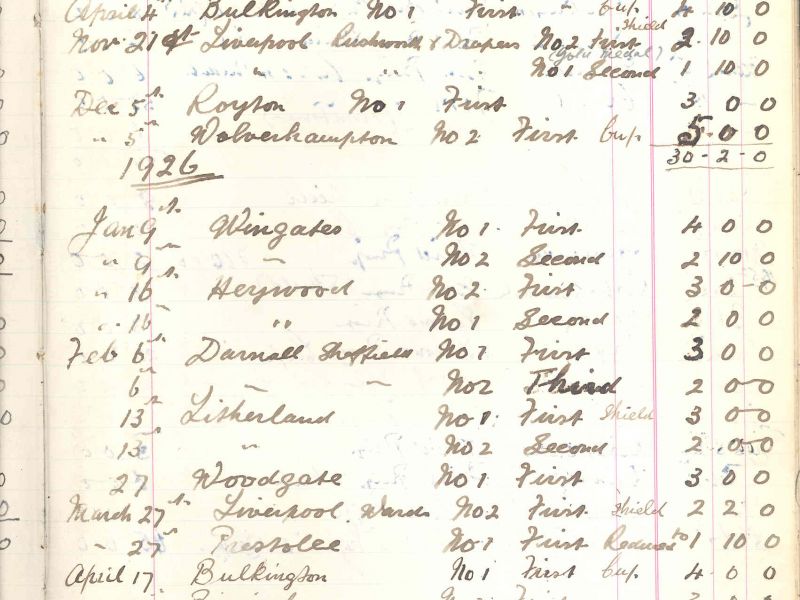 April 4th Bulkington No 1 First " Cup 4 10 0
Nov 21st Liverpool Rushworth & Drapers No 2 First Shield 2 10 0
" " No 1 Second (Gold Medal) 1 10 0
Dec 5th Royton No 1 First 3 0 0
" 5th Wolverhampton No 2 First Cup 5-0 0
30-2-0
1926
Jan 9th Wingates No 1 First 4 0 0
" 9th " No 2 Second 2 10 0
" 16th Heywood No 2 First 3 0-0
" 16 " No 1 Second 2 0 0
Feb 6th Darnall Sheffield No 1 First 3 0 0
6th " " No 2 Third 2 0-0
13th Litherland No 1 First Shield 3 0-0
13th " No 2 Second 2 0-0
27 Woodgate No 1 First 3 0 0
March 27th Liverpool Wards No 2 First Shield 2 2 0
" 27th Prestolee No 1 First Reduced to 1 10 0
April 17 Bulkington No 1 First Cup 4-0 0